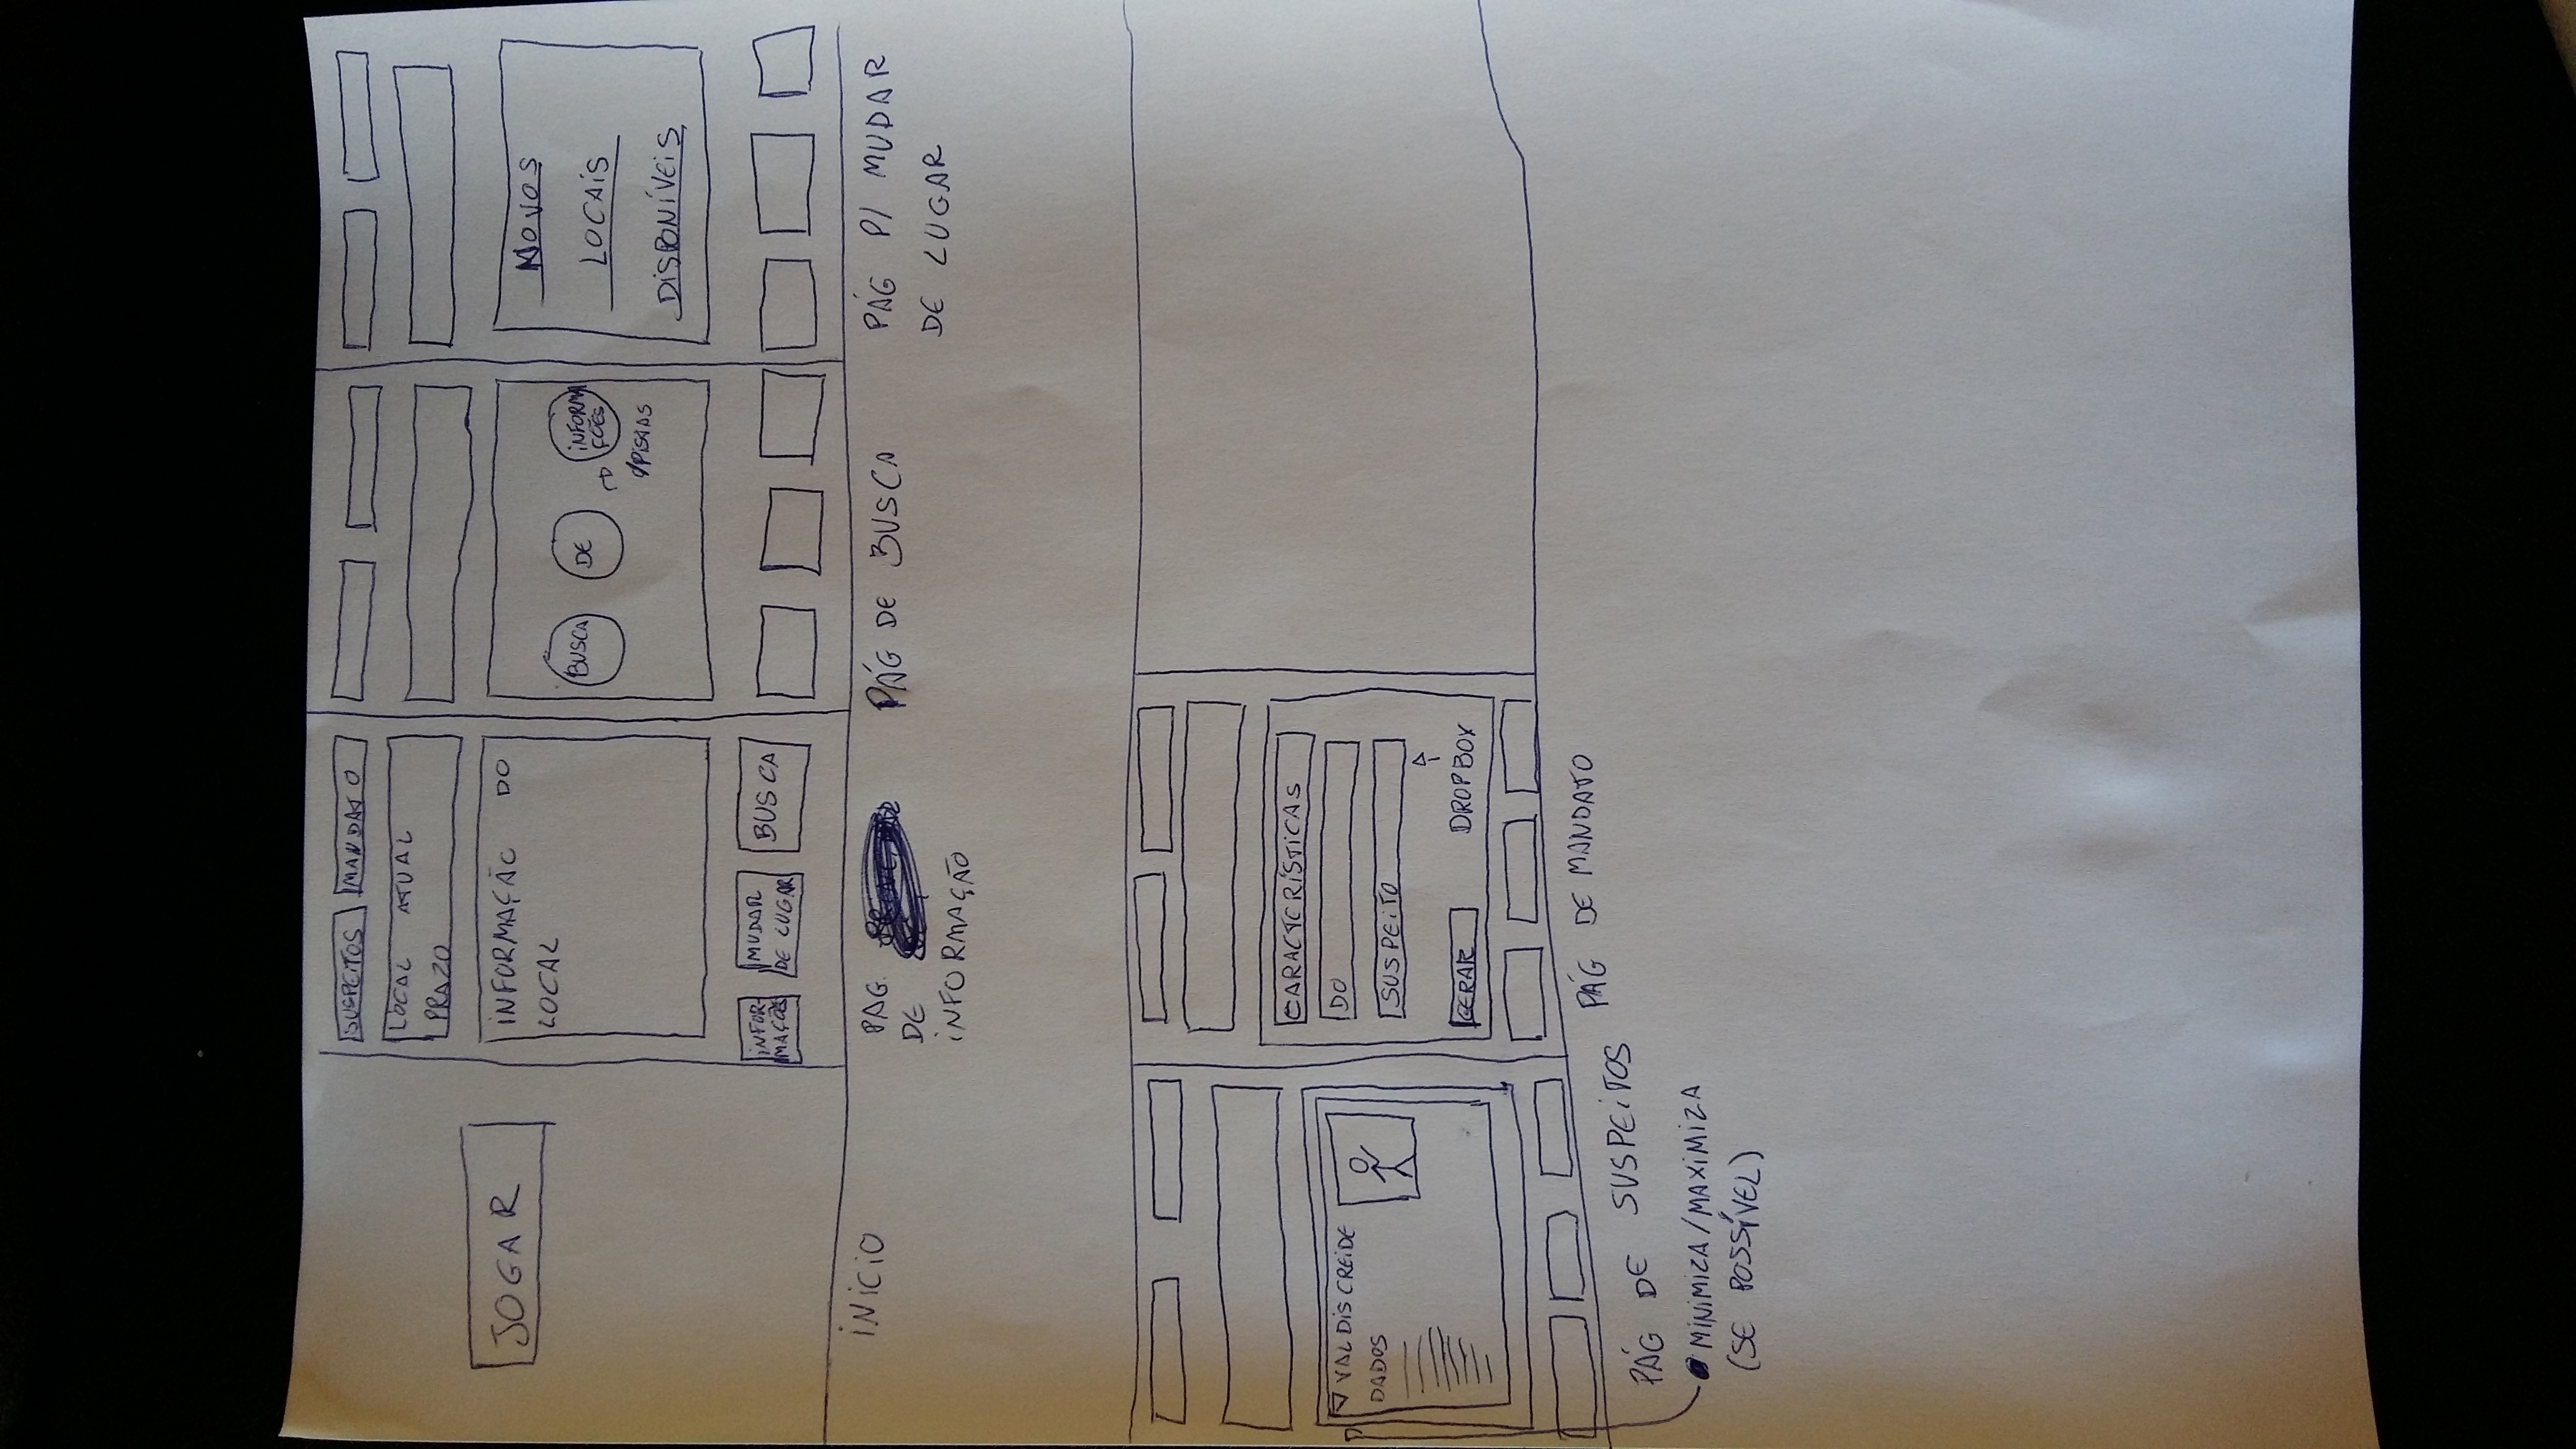 JOGAR
INICIO
SUSPEITOS MANDATO
LOCAL ATUAL
PRAZO
INFORMAÇÃO DO
LOCAL
INFOR-
MAÇÕES
MUDAR
DE LUGAR
BUSCA
PAG.
DE
INFORMAÇÃO
BUSCA DE INFORMA
ÇÕES
P/PISTAS
PÁG DE BUSCA
NOVOS
LOCAIS
DISPONÍVEIS
PÁG P/ MUDAR
DE LUGAR
VALDISCREIDE
DADOS
PÁG DE SUSPEITOS
MINIMIZA/MAXIMIZA
(SE POSSÍVEL)
CARACTERÍSTICAS
DO
SUSPEITO
GERAR DROPBOX
PÁG DE MANDATO